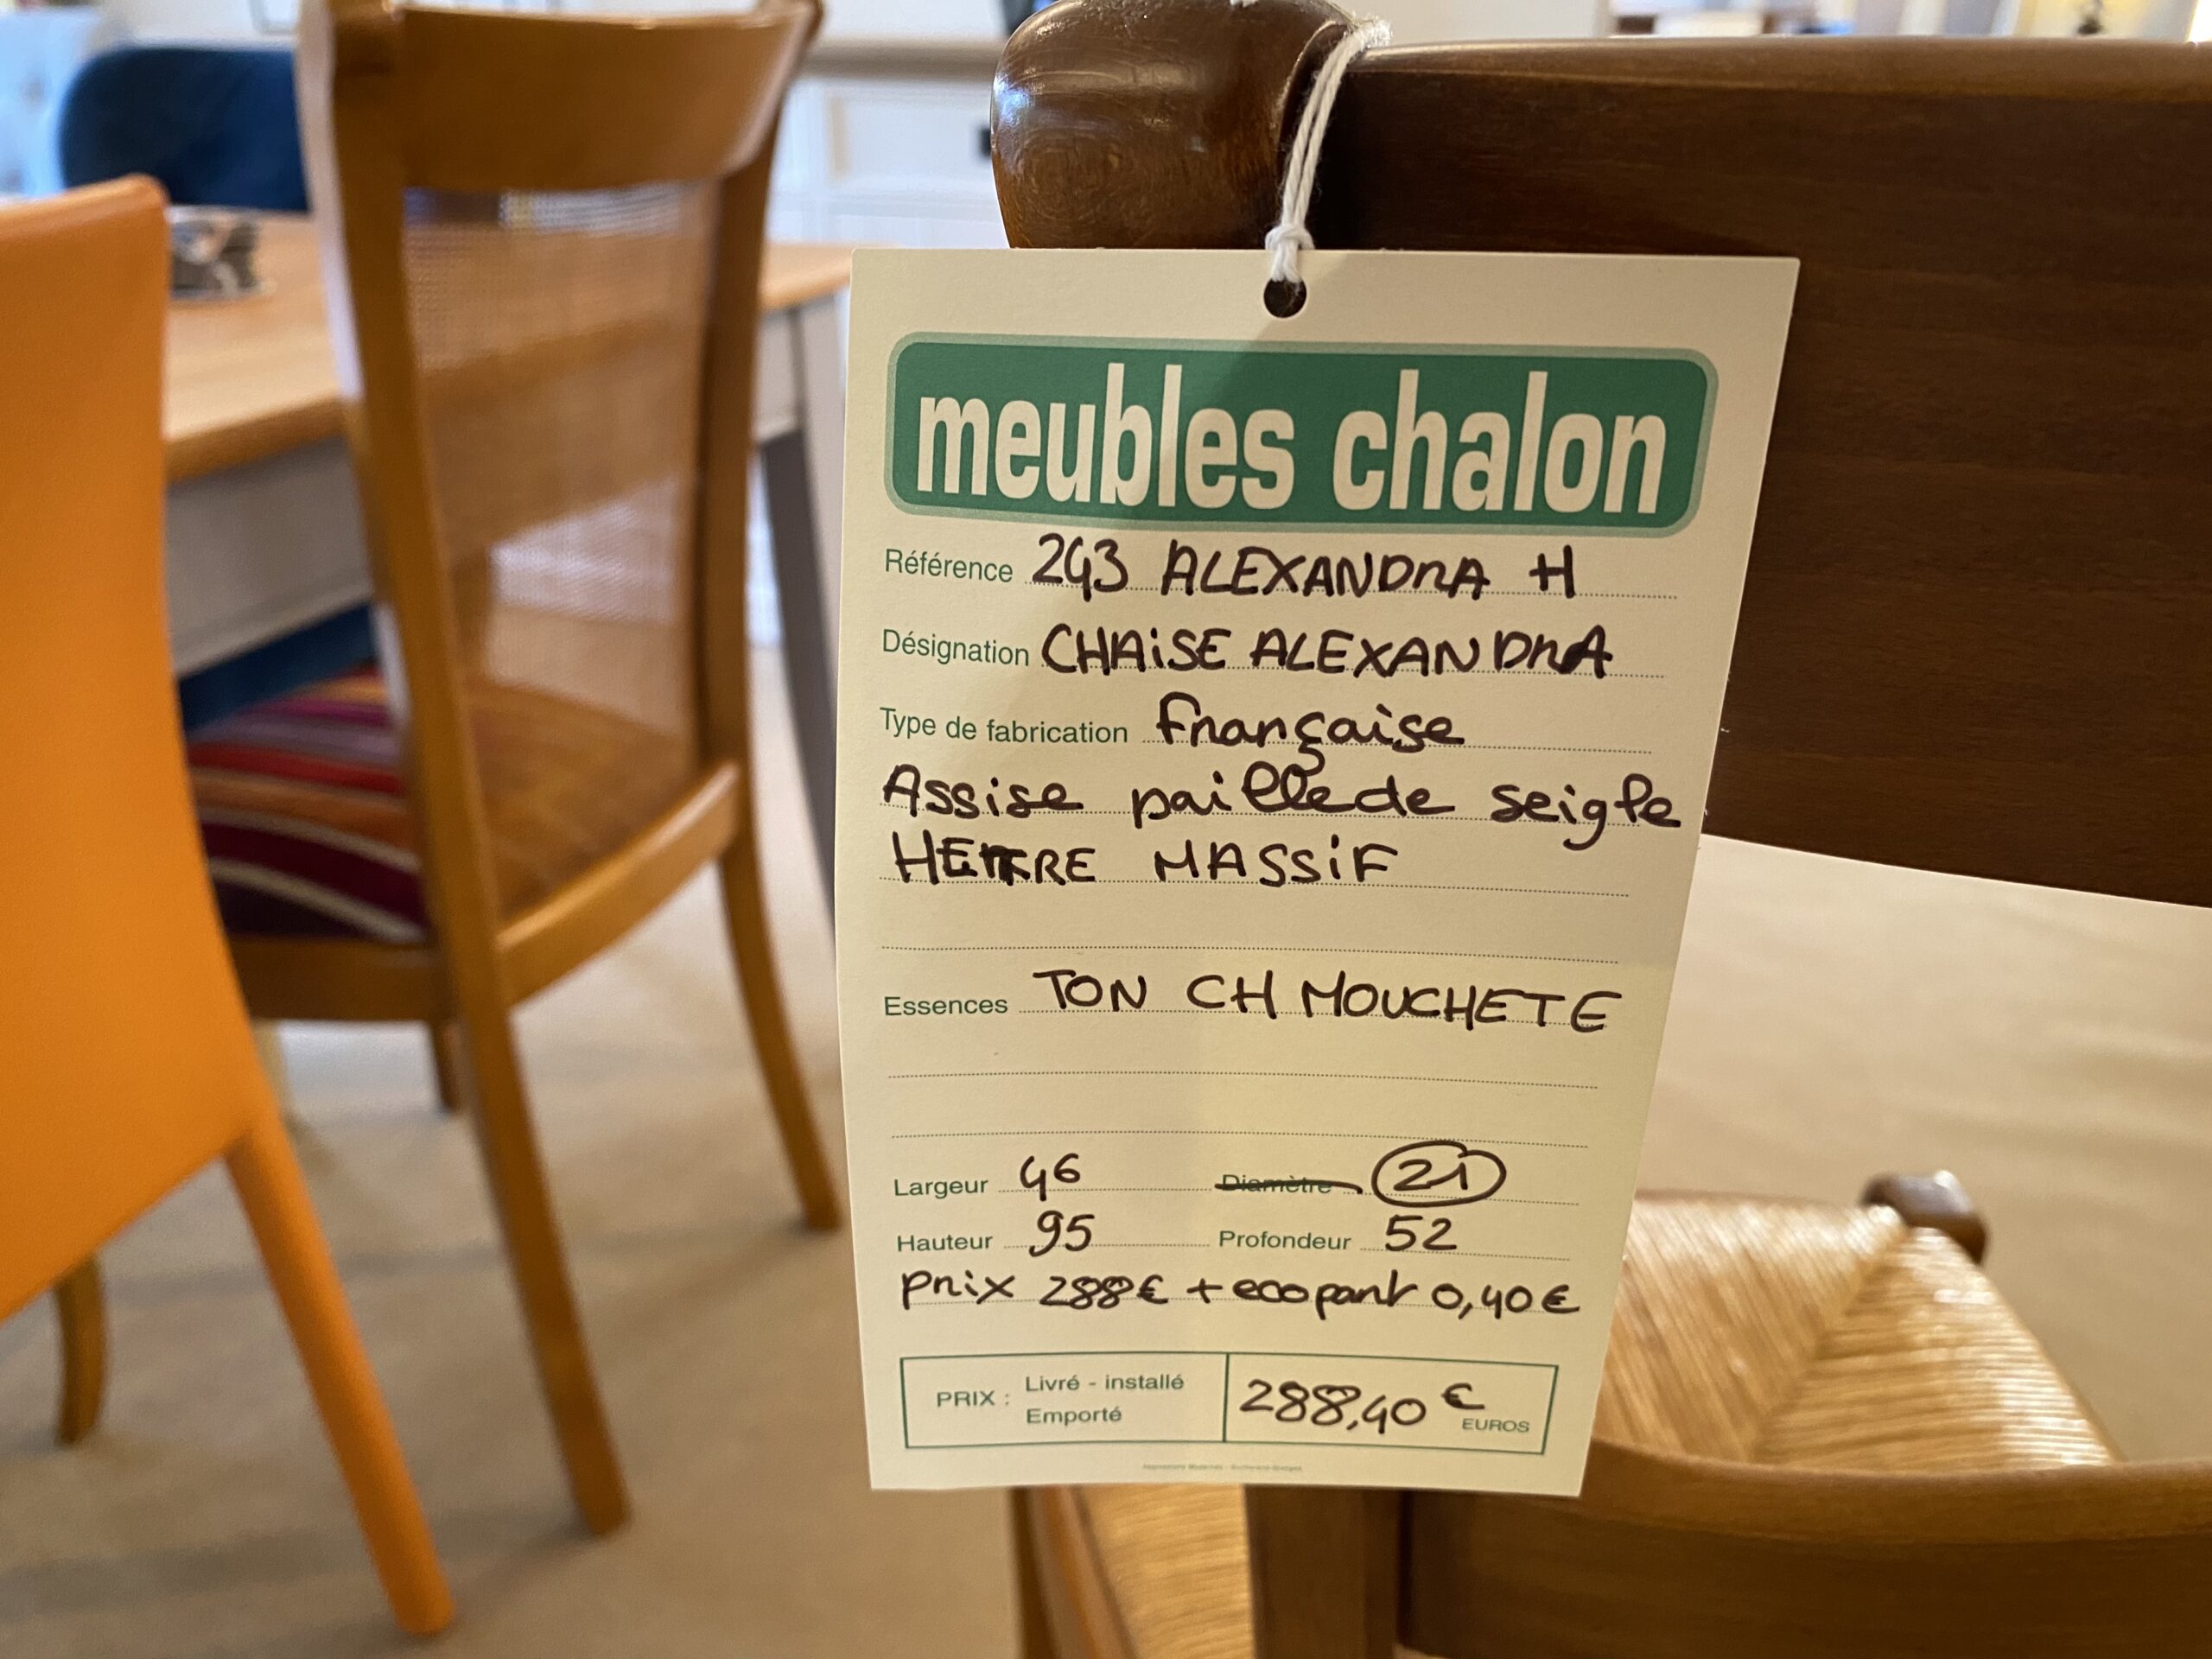 meubles chalon
Référence 243 ALEXANDRA H
Désignation CHAISE ALEXANDRA
Type de fabrication Française
Assise paille de seigle
HETRE MASSIF
Essences TON CH MOUCHETE
Largeur 46 Diamètre 21
Hauteur 95 Profondeur 52
prix 288€ + ecopart 0,40€
PRIX : Livré - installé
Emporté
288,40 €
EUROS